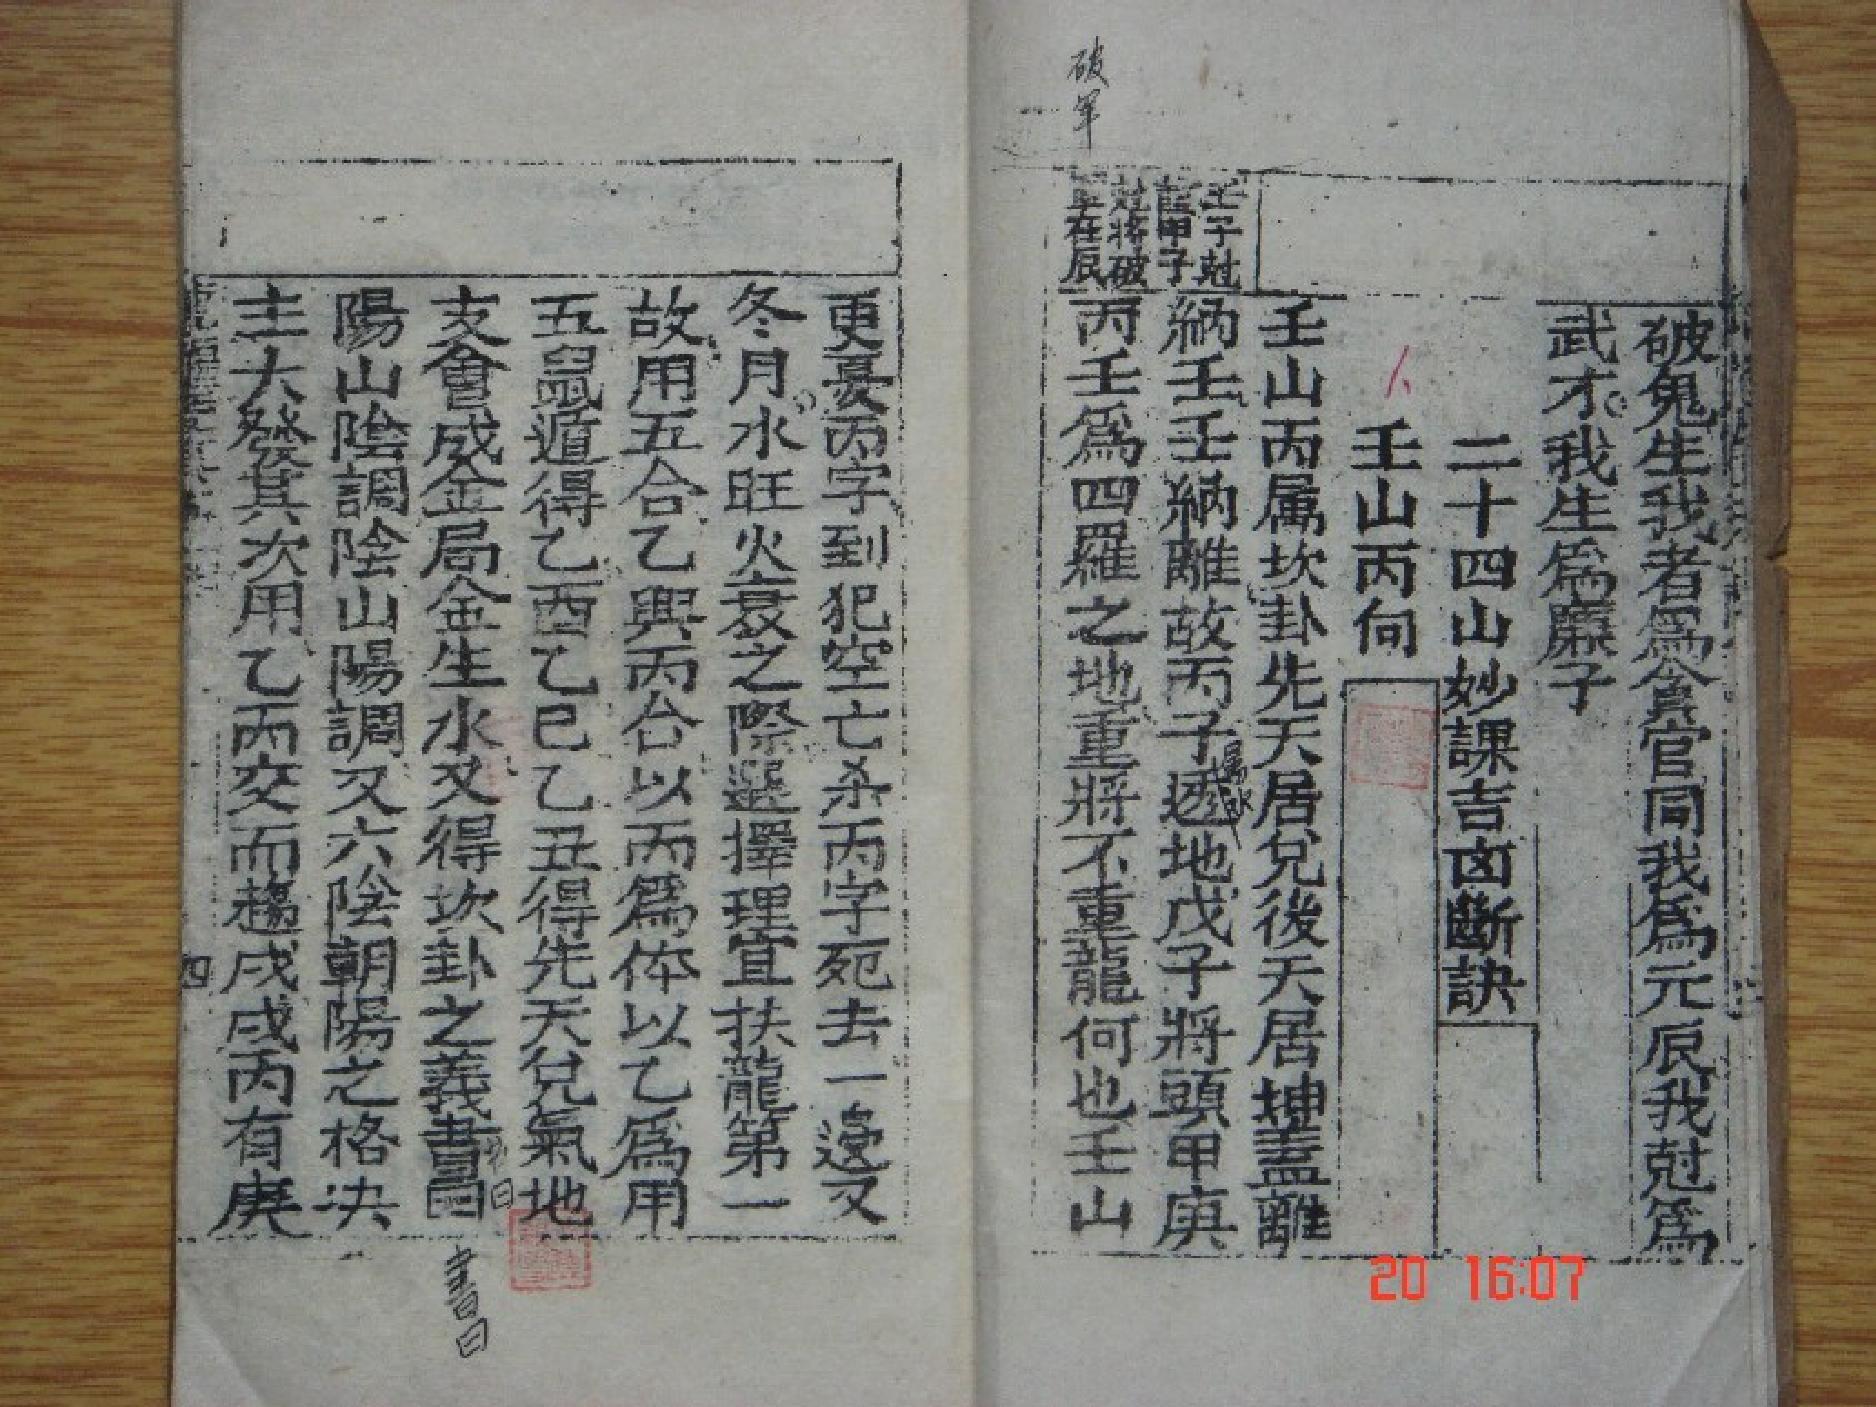 破鬼生我者為貪官同我為元辰我尅為
武才我生為廉子
二十四山妙課吉凶斷訣
壬山丙向
壬山丙属坎卦先天居兌後天居坤蓋離
納壬壬納離故丙子透地戊子將頭甲庚
丙壬為四羅之地重將不重龍何也壬山
壬子尅
龍甲子
尅將破
軍在辰
破軍
属水
更憂丙字到犯空亡杀丙字死去一邊又
冬月水旺火衰之際選擇理宜扶龍第一
故用五合乙與丙合以丙為体以乙為用
五鼠遁得乙酉乙巳乙丑得先天兌氣地
支會成金局金生水又得坎卦之義書曰
陽山陰調陰山陽調又六陰朝陽之格决
主大發其次用乙丙交而趨戌戌丙有庚
書曰
四
20 16:07